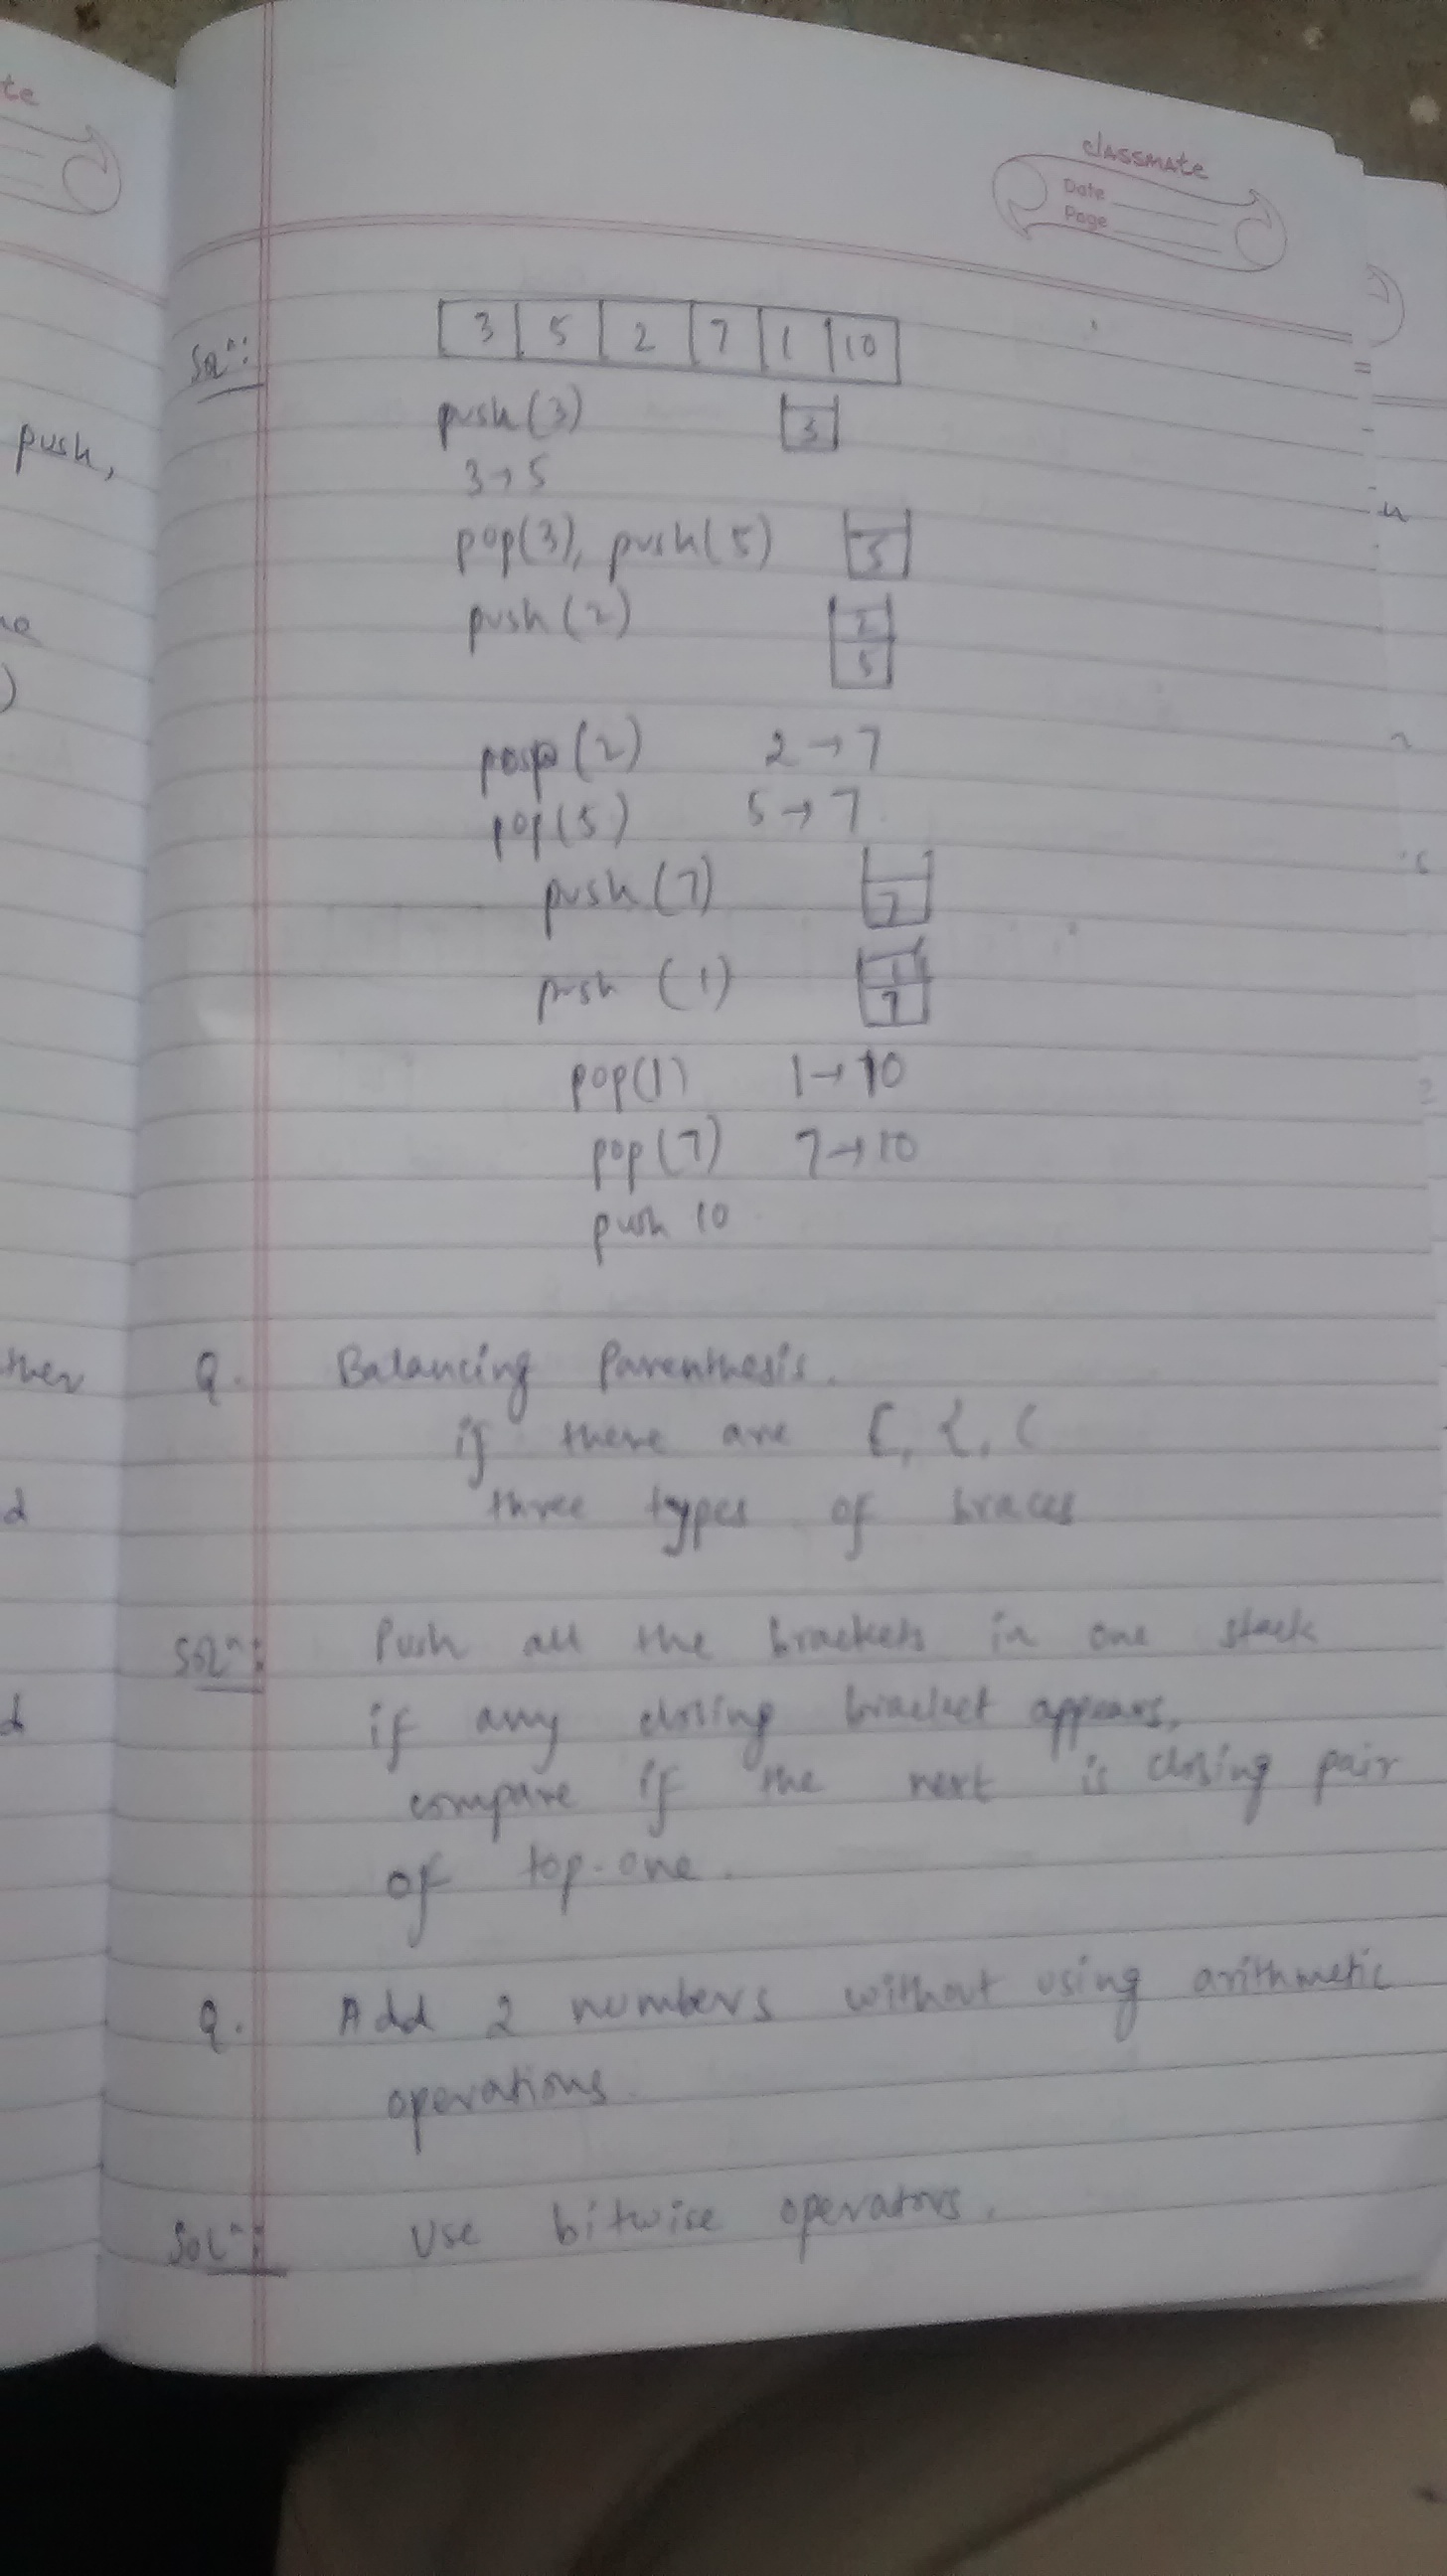 te
classmate
Date
Page
Sol^n:
3 5 2 7 1 10
push(3) 3
3→5
push,
pop(3), push(5) 5
push(2) 2
5
pop(2) 2→7
)
pop(5) 5→7
push(7) 7
push (1) 1
7
pop(1) 1→10
pop(7) 7→10
push 10
Q. Balancing Parenthesis.
if there are [, {, (
three types of braces
d
Sol^n: Push all the brackets in one stack
d
if any closing bracket appears,
compare if the next is closing pair
of top-one.
Q. Add 2 numbers without using arithmetic
operations.
Sol^n: Use bitwise operators.